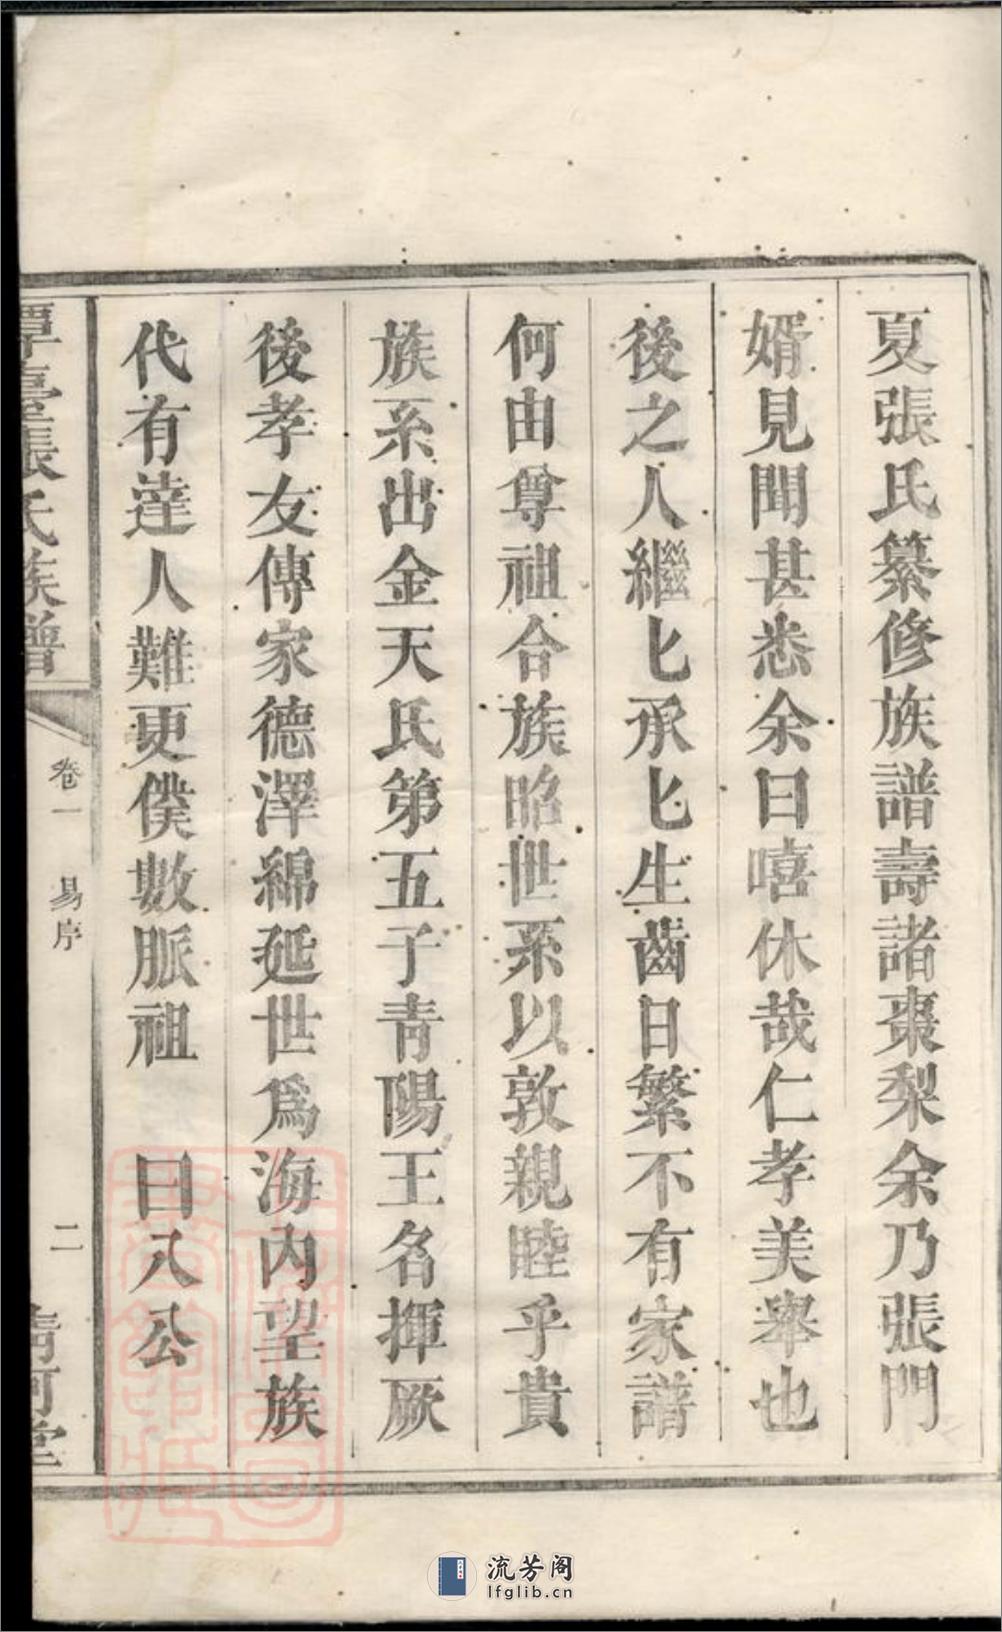 夏張氏纂修族譜壽諸棗梨余乃張門
婿見聞甚悉余曰嘻休哉仁孝美舉也
後之人繼匕承匕生齒日繁不有家譜
何由尊祖合族昭世系以敦親睦乎貴
族系出金天氏第五子青陽王名揮厥
後孝友傳家德澤綿延世爲海內望族
代有達人難更僕數脈祖 曰八公
張氏族譜
卷一 易序
二
清河堂
流芳阁
lfglib.cn